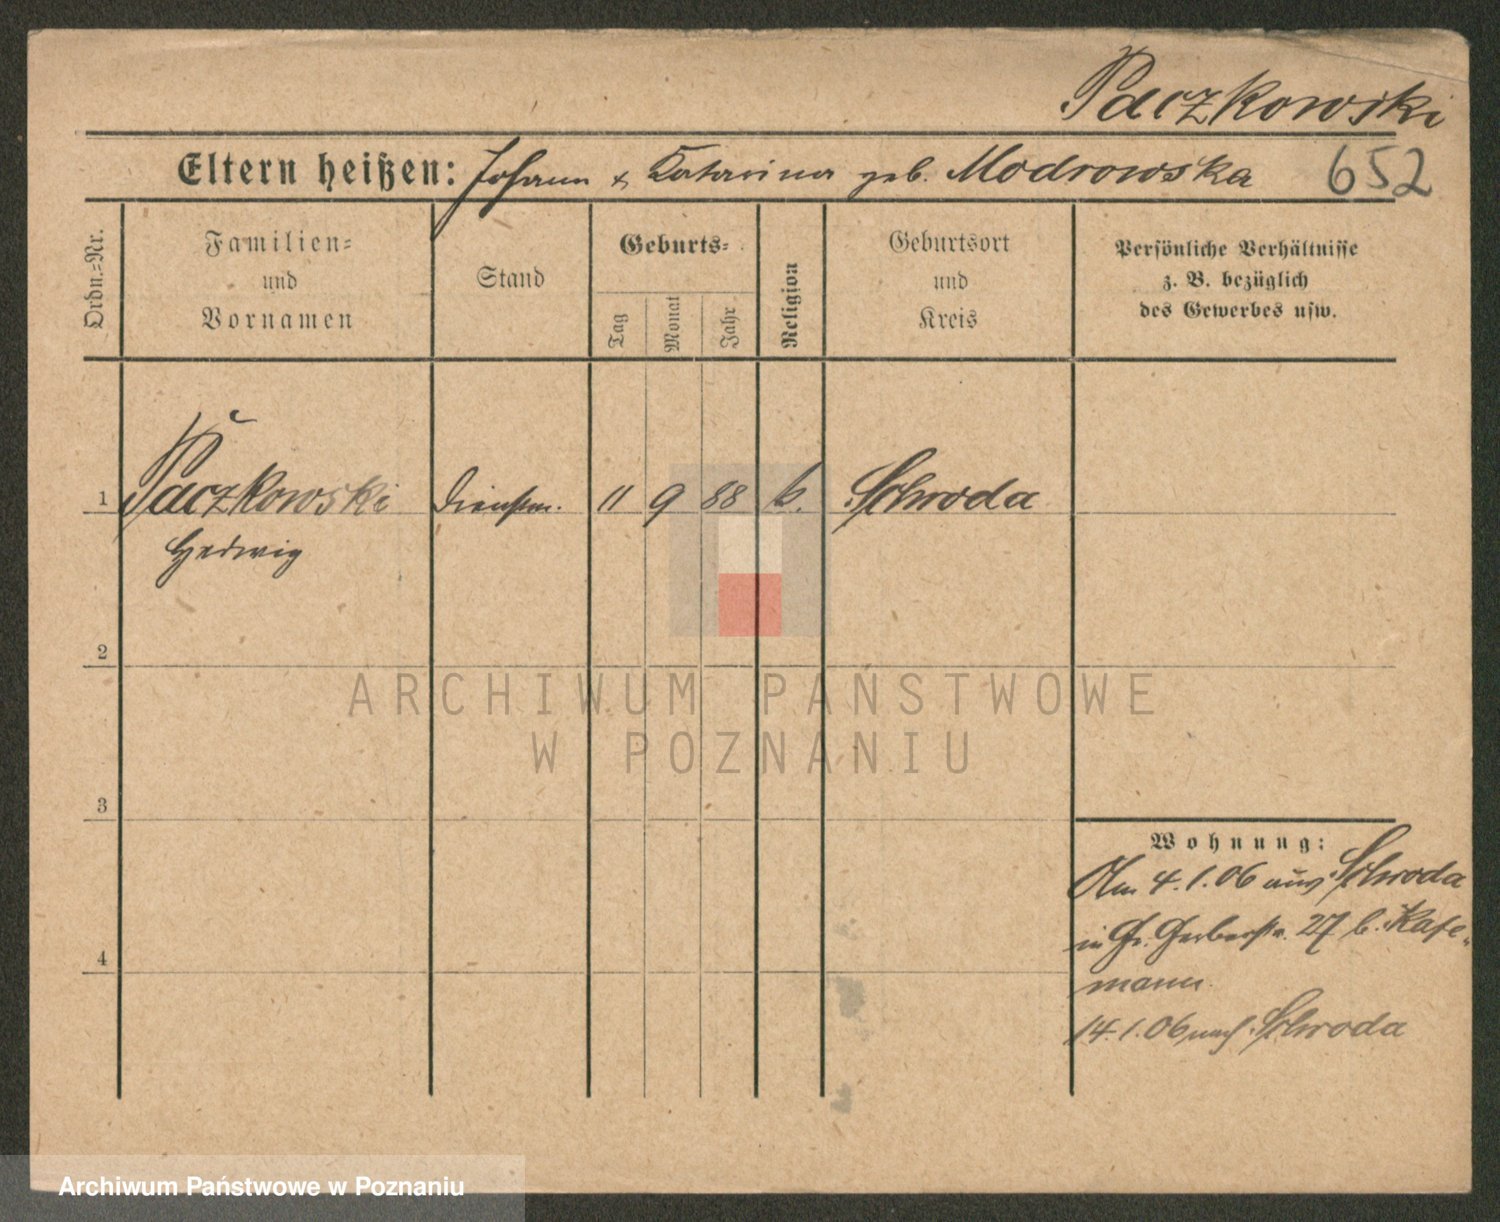 Paczkowski
Eltern heißen: Johann & Katarina geb. Modrowska 652
Ordn.-Nr.
Familien-
und
Vornamen
Stand
Geburts-
Tag
Monat
Jahr
Religion
Geburtsort
und
Kreis
Persönliche Verhältnisse
z. B. bezüglich
des Gewerbes usw.
1 Paczkowski Dienstm. 11 9 88 k. Schroda
Hedwig
2
ARCHIWUM PAŃSTWOWE
W POZNANIU
3
Wohnung:
Am 4.1.06 aus Schroda
in Gr. Gerberstr. 27 b. Kafe-
mann.
4
14.1.06 nach Schroda
Archiwum Państwowe w Poznaniu